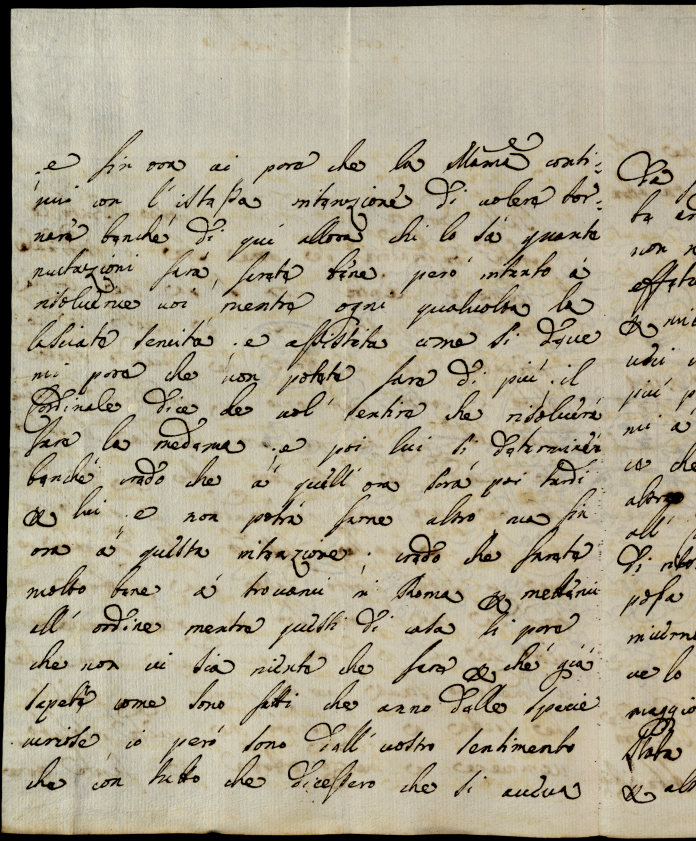 e fin ora vi pare che la Mama conti=
nui con l'istessa intenzione di volere tor=
nare benche di qui allora chi lo sà quante
mutazioni farà, farete bene però intanto à
risolverne voi, mentre ogni qualvolta la
lasciate servita e assistita come si deve
mi pare che non potete fare di più. il
Cardinale dice che vol' sentire che risolverà
fare la medema e poi lui si determinerà
benche credo che à quell' ora sarà poi tardi
per lui e non potrà farne altro ma fin
ora à questa intenzione. credo che farete
molto bene à trovarvi in Roma per mettervi
all' ordine mentre questi di casa li pare
che non vi sia niente che fare per che già
sapete come sono fatti che anno delle specie
curiose io però sono dall' vostro sentimento
che con tutto che dicessero che si aveva
Da
ta
non
effetu

voi
più p
mi a
io che
altro
all'
di
posa

ve lo
maggio
stata
per alt